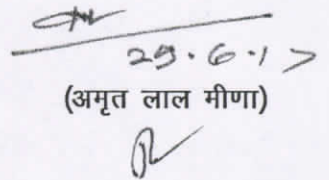 29.6.17
(अमृत लाल मीणा)